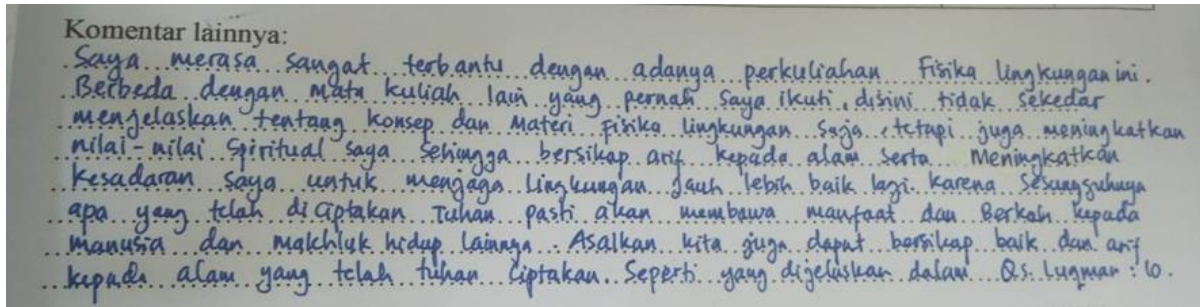 Komentar lainnya:
Saya merasa sangat terbantu dengan adanya perkuliahan Fisika lingkungan ini.
Berbeda dengan mata kuliah lain yang pernah saya ikuti, disini tidak sekedar
menjelaskan tentang konsep dan materi fisika lingkungan saja, tetapi juga meningkatkan
nilai-nilai spiritual saya sehingga bersikap arif kepada alam serta Meningkatkan
kesadaran saya untuk menjaga lingkungan jauh lebih baik lagi. karena sesungguhnya
apa yang telah diciptakan Tuhan pasti akan membawa manfaat dan Berkah kepada
manusia dan makhluk hidup lainnya. Asalkan kita juga dapat bersikap baik dan arif
kepada alam yang telah tuhan ciptakan. Seperti yang dijelaskan dalam Qs. Luqman : 10.